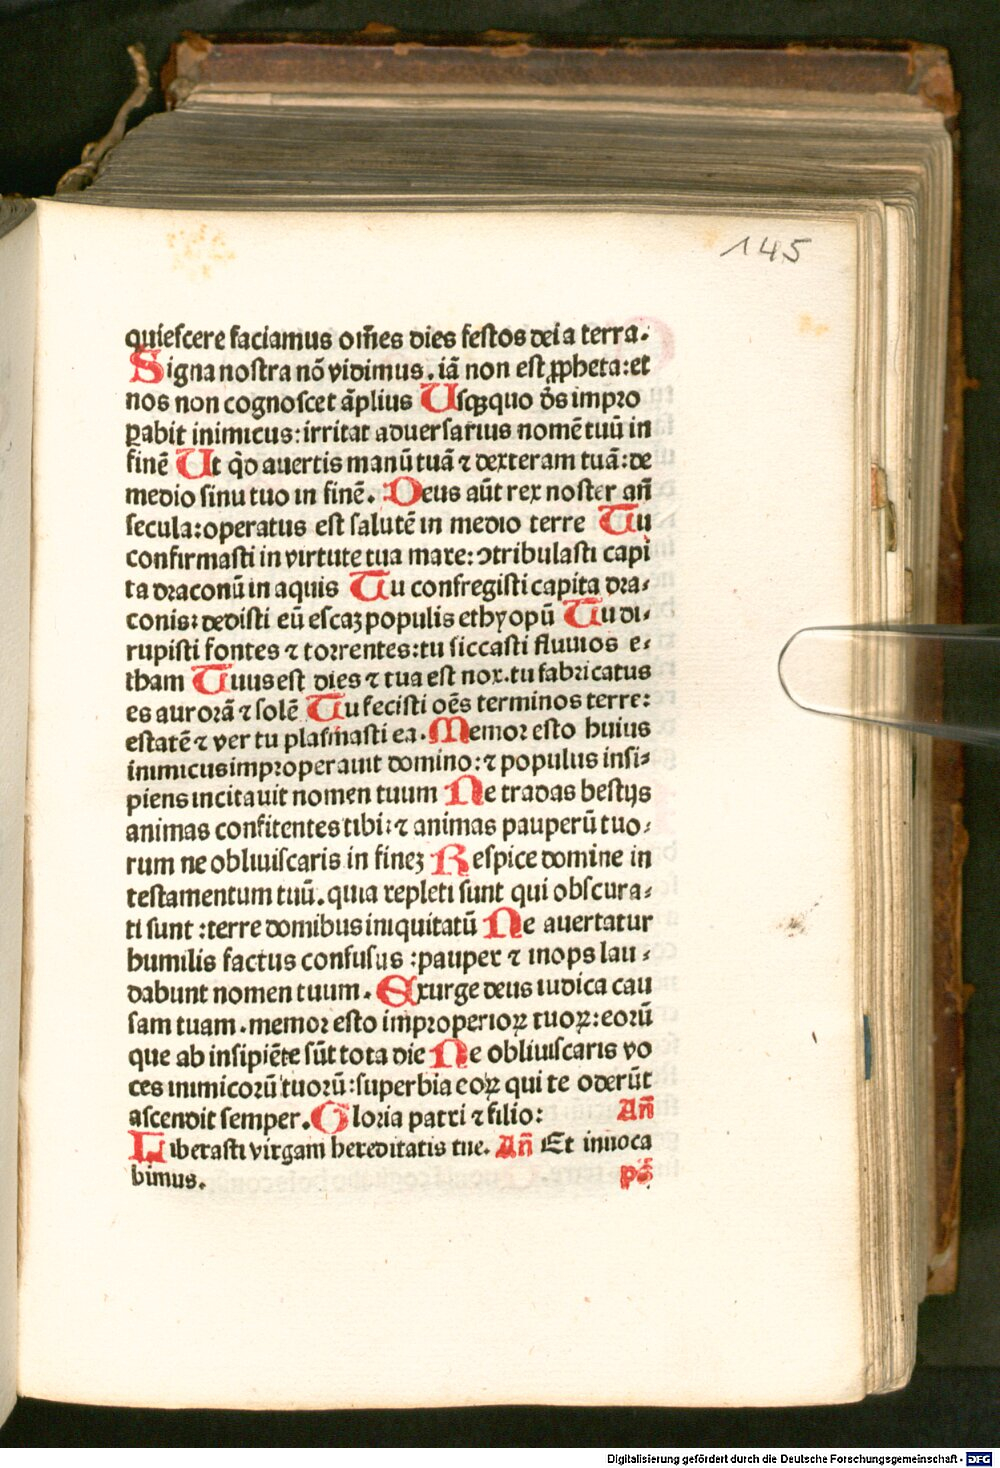 145
quiescere faciamus om̄es dies festos dei a terra.
Signa nostra nō vidimus. iā non est ꝓpheta: et
nos non cognoscet āplius Usꝙquo d̄s impro
ꝑabit inimicus: irritat aduersarius nomē tuū in
finē Ut qͥd auertis manū tuā ⁊ dexteram tuā: de
medio sinu tuo in finē. Deus aūt rex noster an̄
secula: operatus est salutē in medio terre Tu
confirmasti in virtute tua mare: ꝯtribulasti capi
ta draconū in aquis Tu confregisti capita dra⸗
conis: dedisti eū escaꝫ populis ethyopū Tu di⸗
rupisti fontes ⁊ torrentes: tu siccasti fluuios e⸗
tham Tuus est dies ⁊ tua est nox. tu fabricatus
es aurorā ⁊ solē Tu fecisti oēs terminos terre:
estatē ⁊ ver tu plasmasti ea. Memor esto huius
inimicus improperauit domino: ⁊ populus insi⸗
piens incitauit nomen tuum Ne tradas bestijs
animas confitentes tibi: ⁊ animas pauperū tuo⸗
rum ne obliuiscaris in fineꝫ Respice domine in
testamentum tuū. quia repleti sunt qui obscura⸗
ti sunt : terre domibus iniquitatū Ne auertatur
humilis factus confusus : pauper ⁊ inops lau⸗
dabunt nomen tuum. Exurge deus iudica cau
sam tuam. memor esto improperioꝝ tuoꝝ: eorū
que ab insipiēte sūt tota die Ne obliuiscaris vo
ces inimicorū tuorū: superbia eoꝝ qui te oderūt
ascendit semper. Gloria patri ⁊ filio: An̄
Liberasti virgam hereditatis tue. An̄ Et inuoca
bimus. ps̄
Digitalisierung gefördert durch die Deutsche Forschungsgemeinschaft - DFG